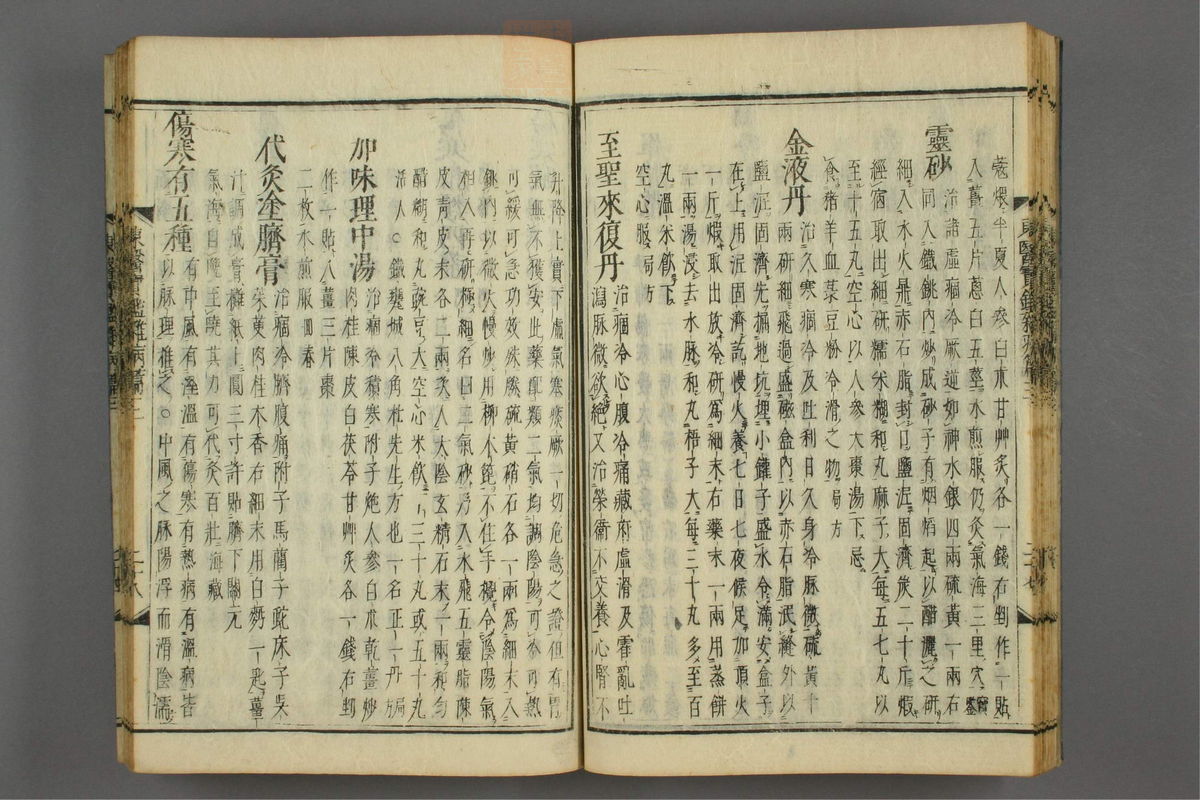 煨半夏人參白朮甘艸炙各一錢右剉作一貼
入薑五片蔥白五莖水煎服仍灸氣海三里穴寶鑑
靈砂治諸虛痼冷厥逆如神水銀四兩硫黃一兩右
同入鐵銚內炒成砂子有烟熖起以醋灑之研
細入水火鼎赤石脂封口鹽泥固濟炭二十斤煆
經宿取出細研糯米糊和丸麻子大每五七丸以
至十五丸空心以人參大棗湯下忌
食猪羊血菉豆粉冷滑之物局方
金液丹治久寒痼冷及吐利日久身冷脉微硫黃十
兩研細飛過盛磁盒內以赤石脂泥縫外以
鹽泥固濟先掘地坑埋小鑵子盛水令滿安盒子
在上用泥固濟訖慢火養七日七夜候足加頂火
一斤煆取出放冷研爲細末右藥末一兩用蒸餅
一兩湯浸去水脉和丸梧子大每三十丸多至百
丸溫米飮下
空心服局方
至聖來復丹治痼冷心腹冷痛藏府虛滑及霍亂吐
瀉脉微欲絶又治榮衛不交養心腎不
升降上實下虛氣塞痰厥一切危急之證但有胃
氣無不獲安此藥配類二氣均調陰陽可冷可熱
可緩可急功效殊勝硫黃硝石各一兩爲細末入
銚內以微火慢炒用柳木篦不住手攪令陰陽氣
相入再研極細名曰二氣砂乃入水飛五靈脂陳
皮靑皮末各二兩次入太陰玄精石末一兩和勻
醋糊和丸豌豆大空心米飮下三十丸或五十丸
活人○鐵甕城八角杜先生方也一名正一丹局方
加味理中湯治痼冷積寒附子炮人參白朮乾薑炒
肉桂陳皮白茯苓甘艸炙各一錢右剉
作一貼入薑三片棗
二枚水煎服回春
代灸塗臍膏治痼冷臍腹痛附子馬藺子蛇床子吳
茱萸肉桂木香右細末用白麪一匙薑
汁調成膏攤紙上圓三寸許貼臍下關元
氣海自曉至晚其力可代灸百壯海藏
傷寒有五種有中風有溼溫有傷寒有熱病有溫病皆
以脉理推之○中風之脉陽浮而滑陰濡